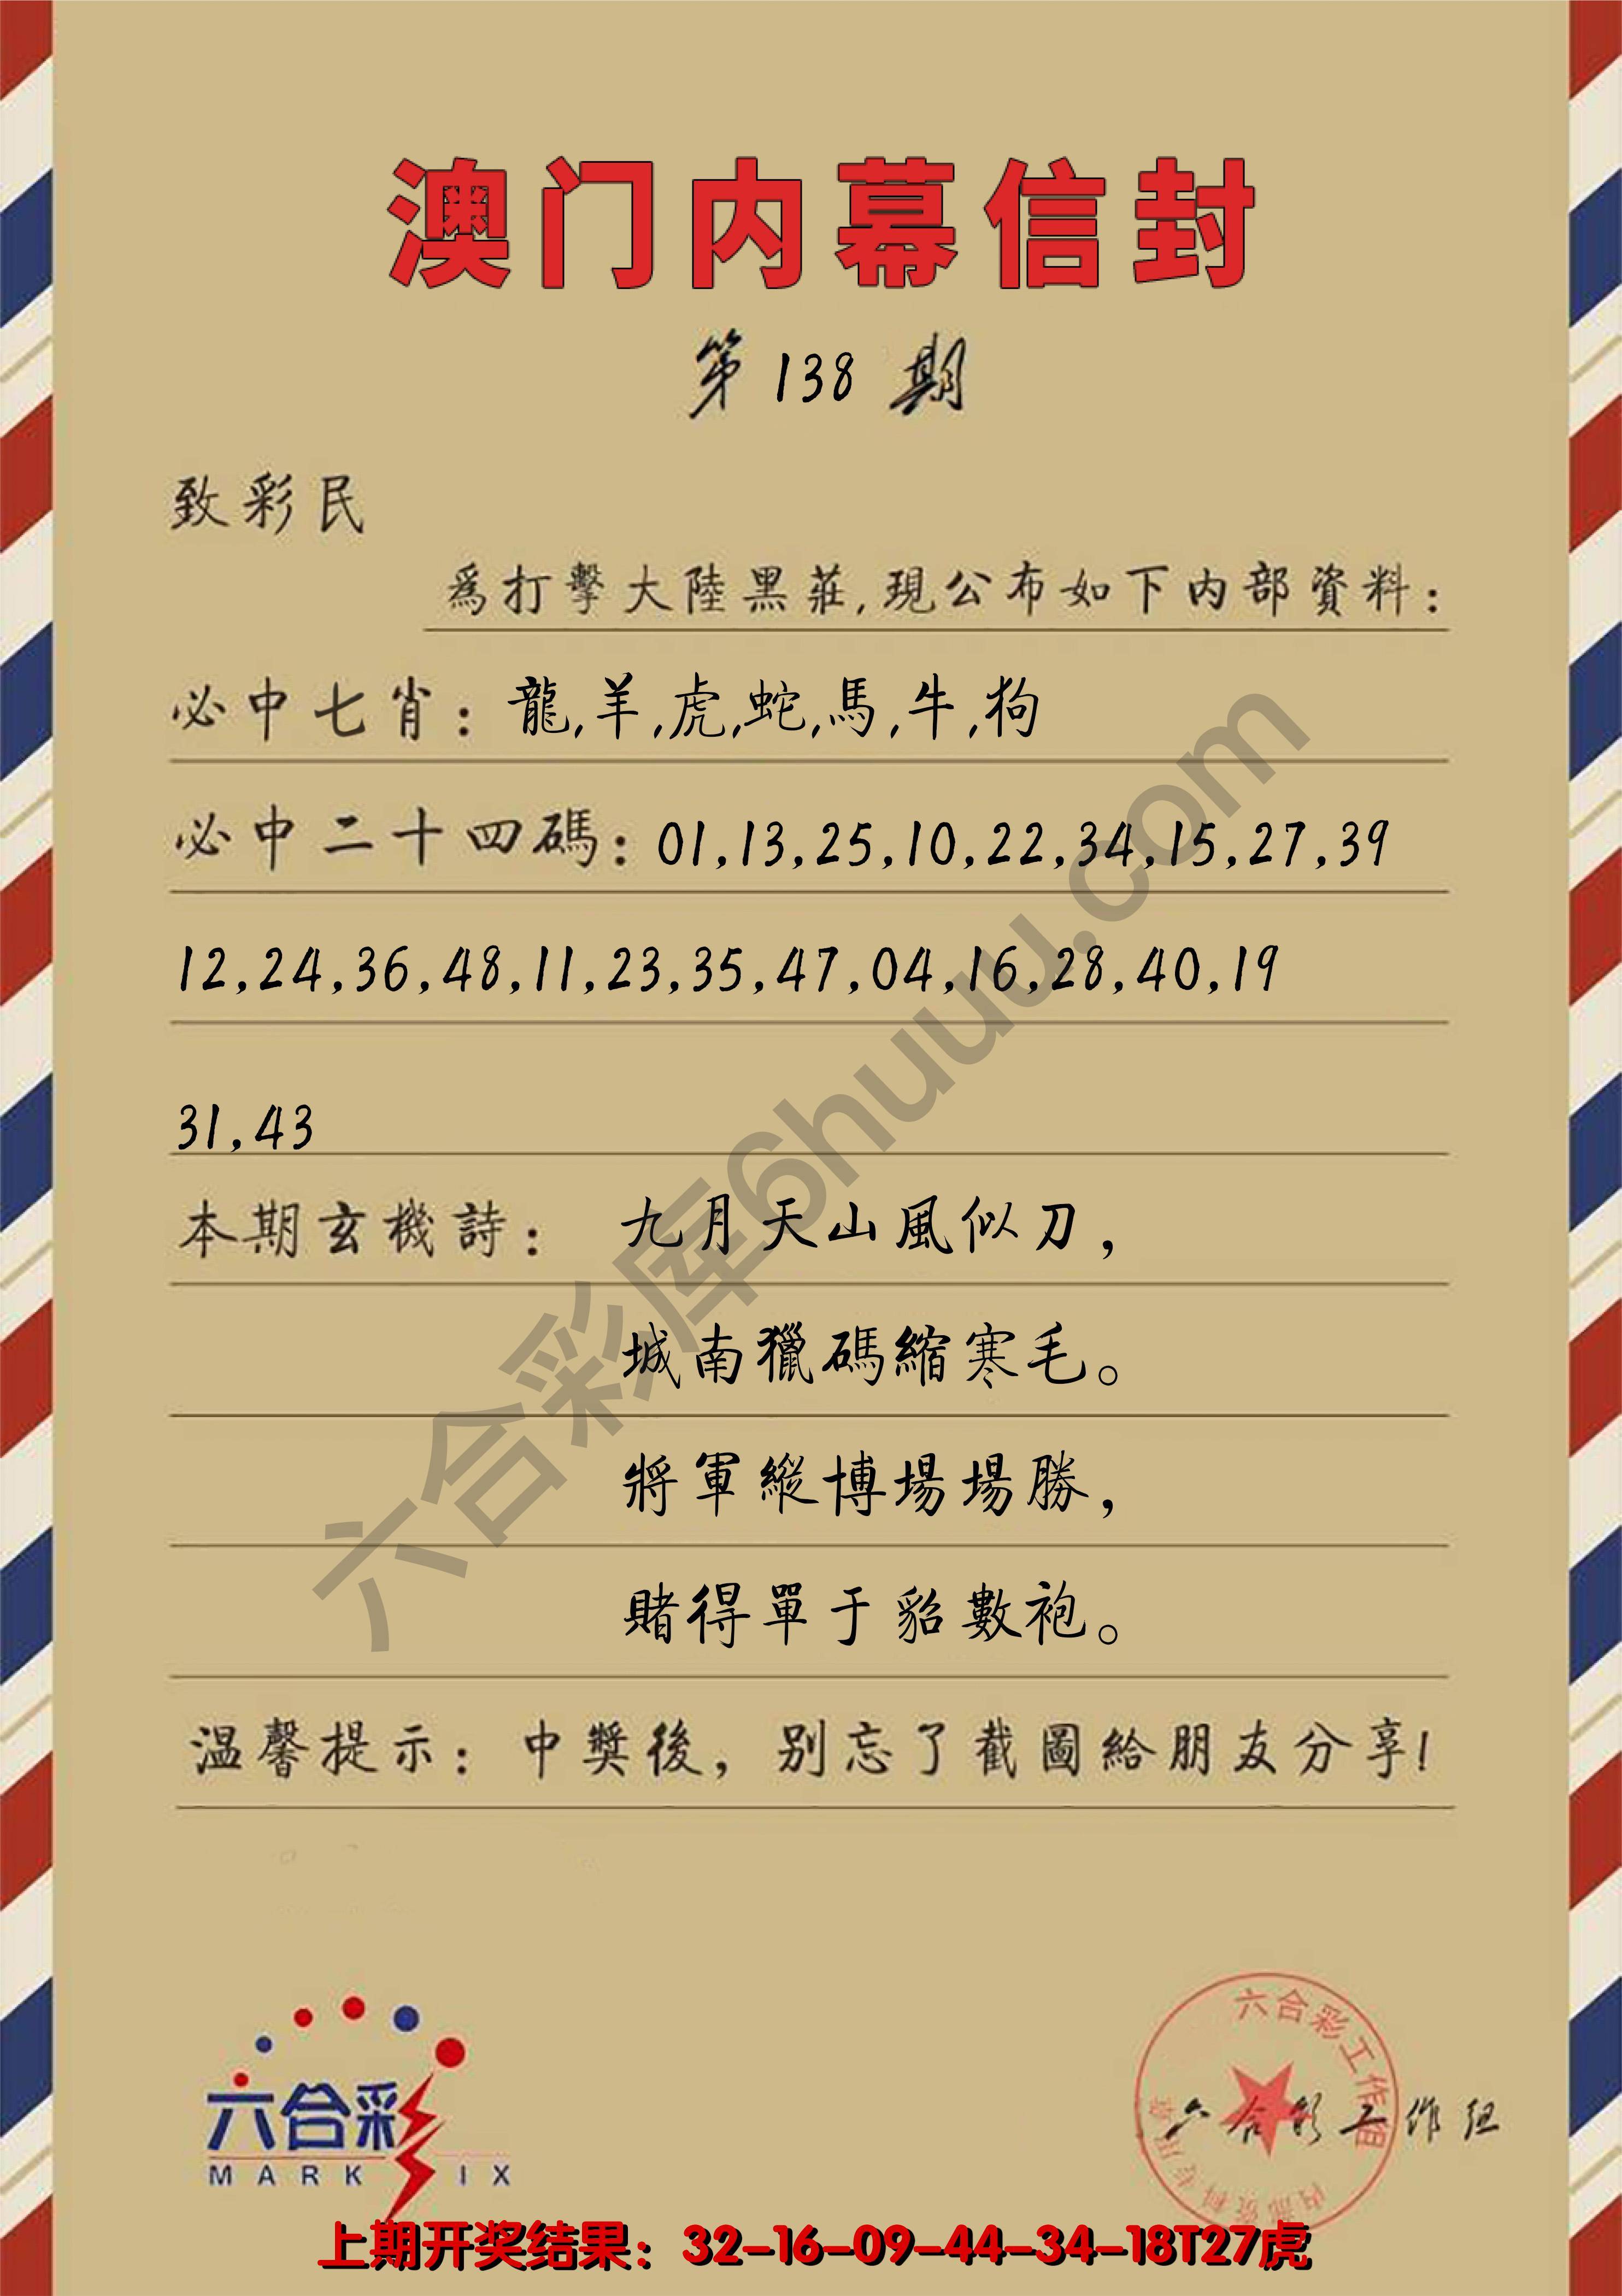 澳门内幕信封
第 138 期
致彩民
為打擊大陸黑莊,現公布如下内部資料:
必中七肖: 龍,羊,虎,蛇,馬,牛,狗
必中二十四碼: 01,13,25,10,22,34,15,27,39
12,24,36,48,11,23,35,47,04,16,28,40,19
31,43
本期玄機詩: 九月天山風似刀,
城南獵碼縮寒毛。
將軍縱博場場勝,
賭得單于貂數袍。
温馨提示: 中獎後,别忘了截圖給朋友分享!
六合彩库6huuu.com
六合彩
MARK SIX
六合彩工作组
内部资料专用章
六合彩工作组
上期开奖结果: 32-16-09-44-34-18T27虎